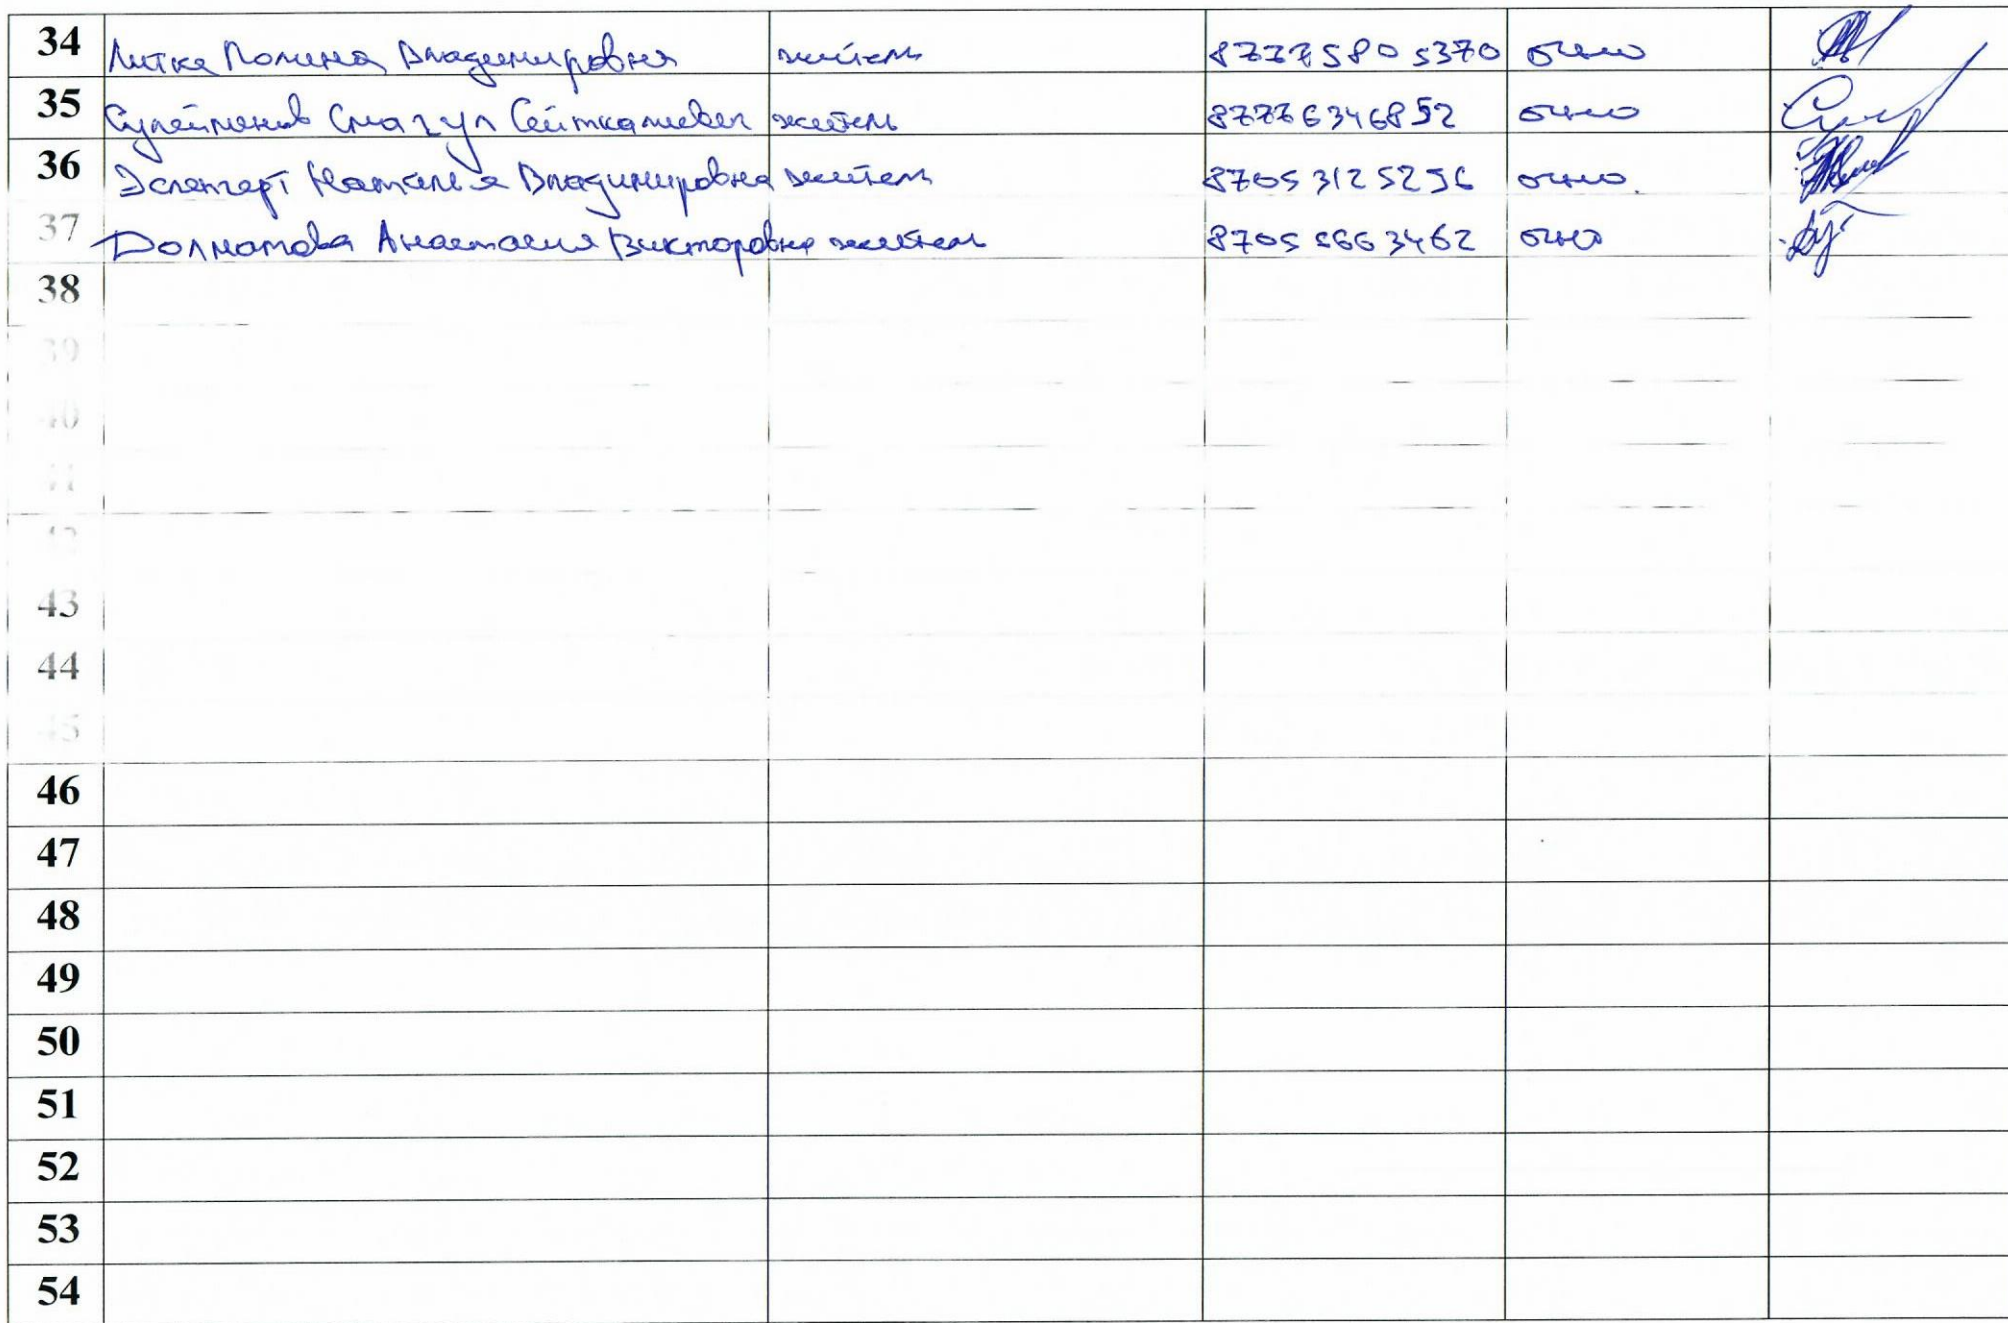 34 Литке Полина Владимировна житель 87775805370 очно
35 Сулейменов Смагул Сейткалиевич житель 87776346852 очно
36 Наталья Владимировна житель 87053125256 очно
37 Долматова Анастасия Викторовна житель 87055663462 очно
38
39
40
41
42
43
44
45
46
47
48
49
50
51
52
53
54